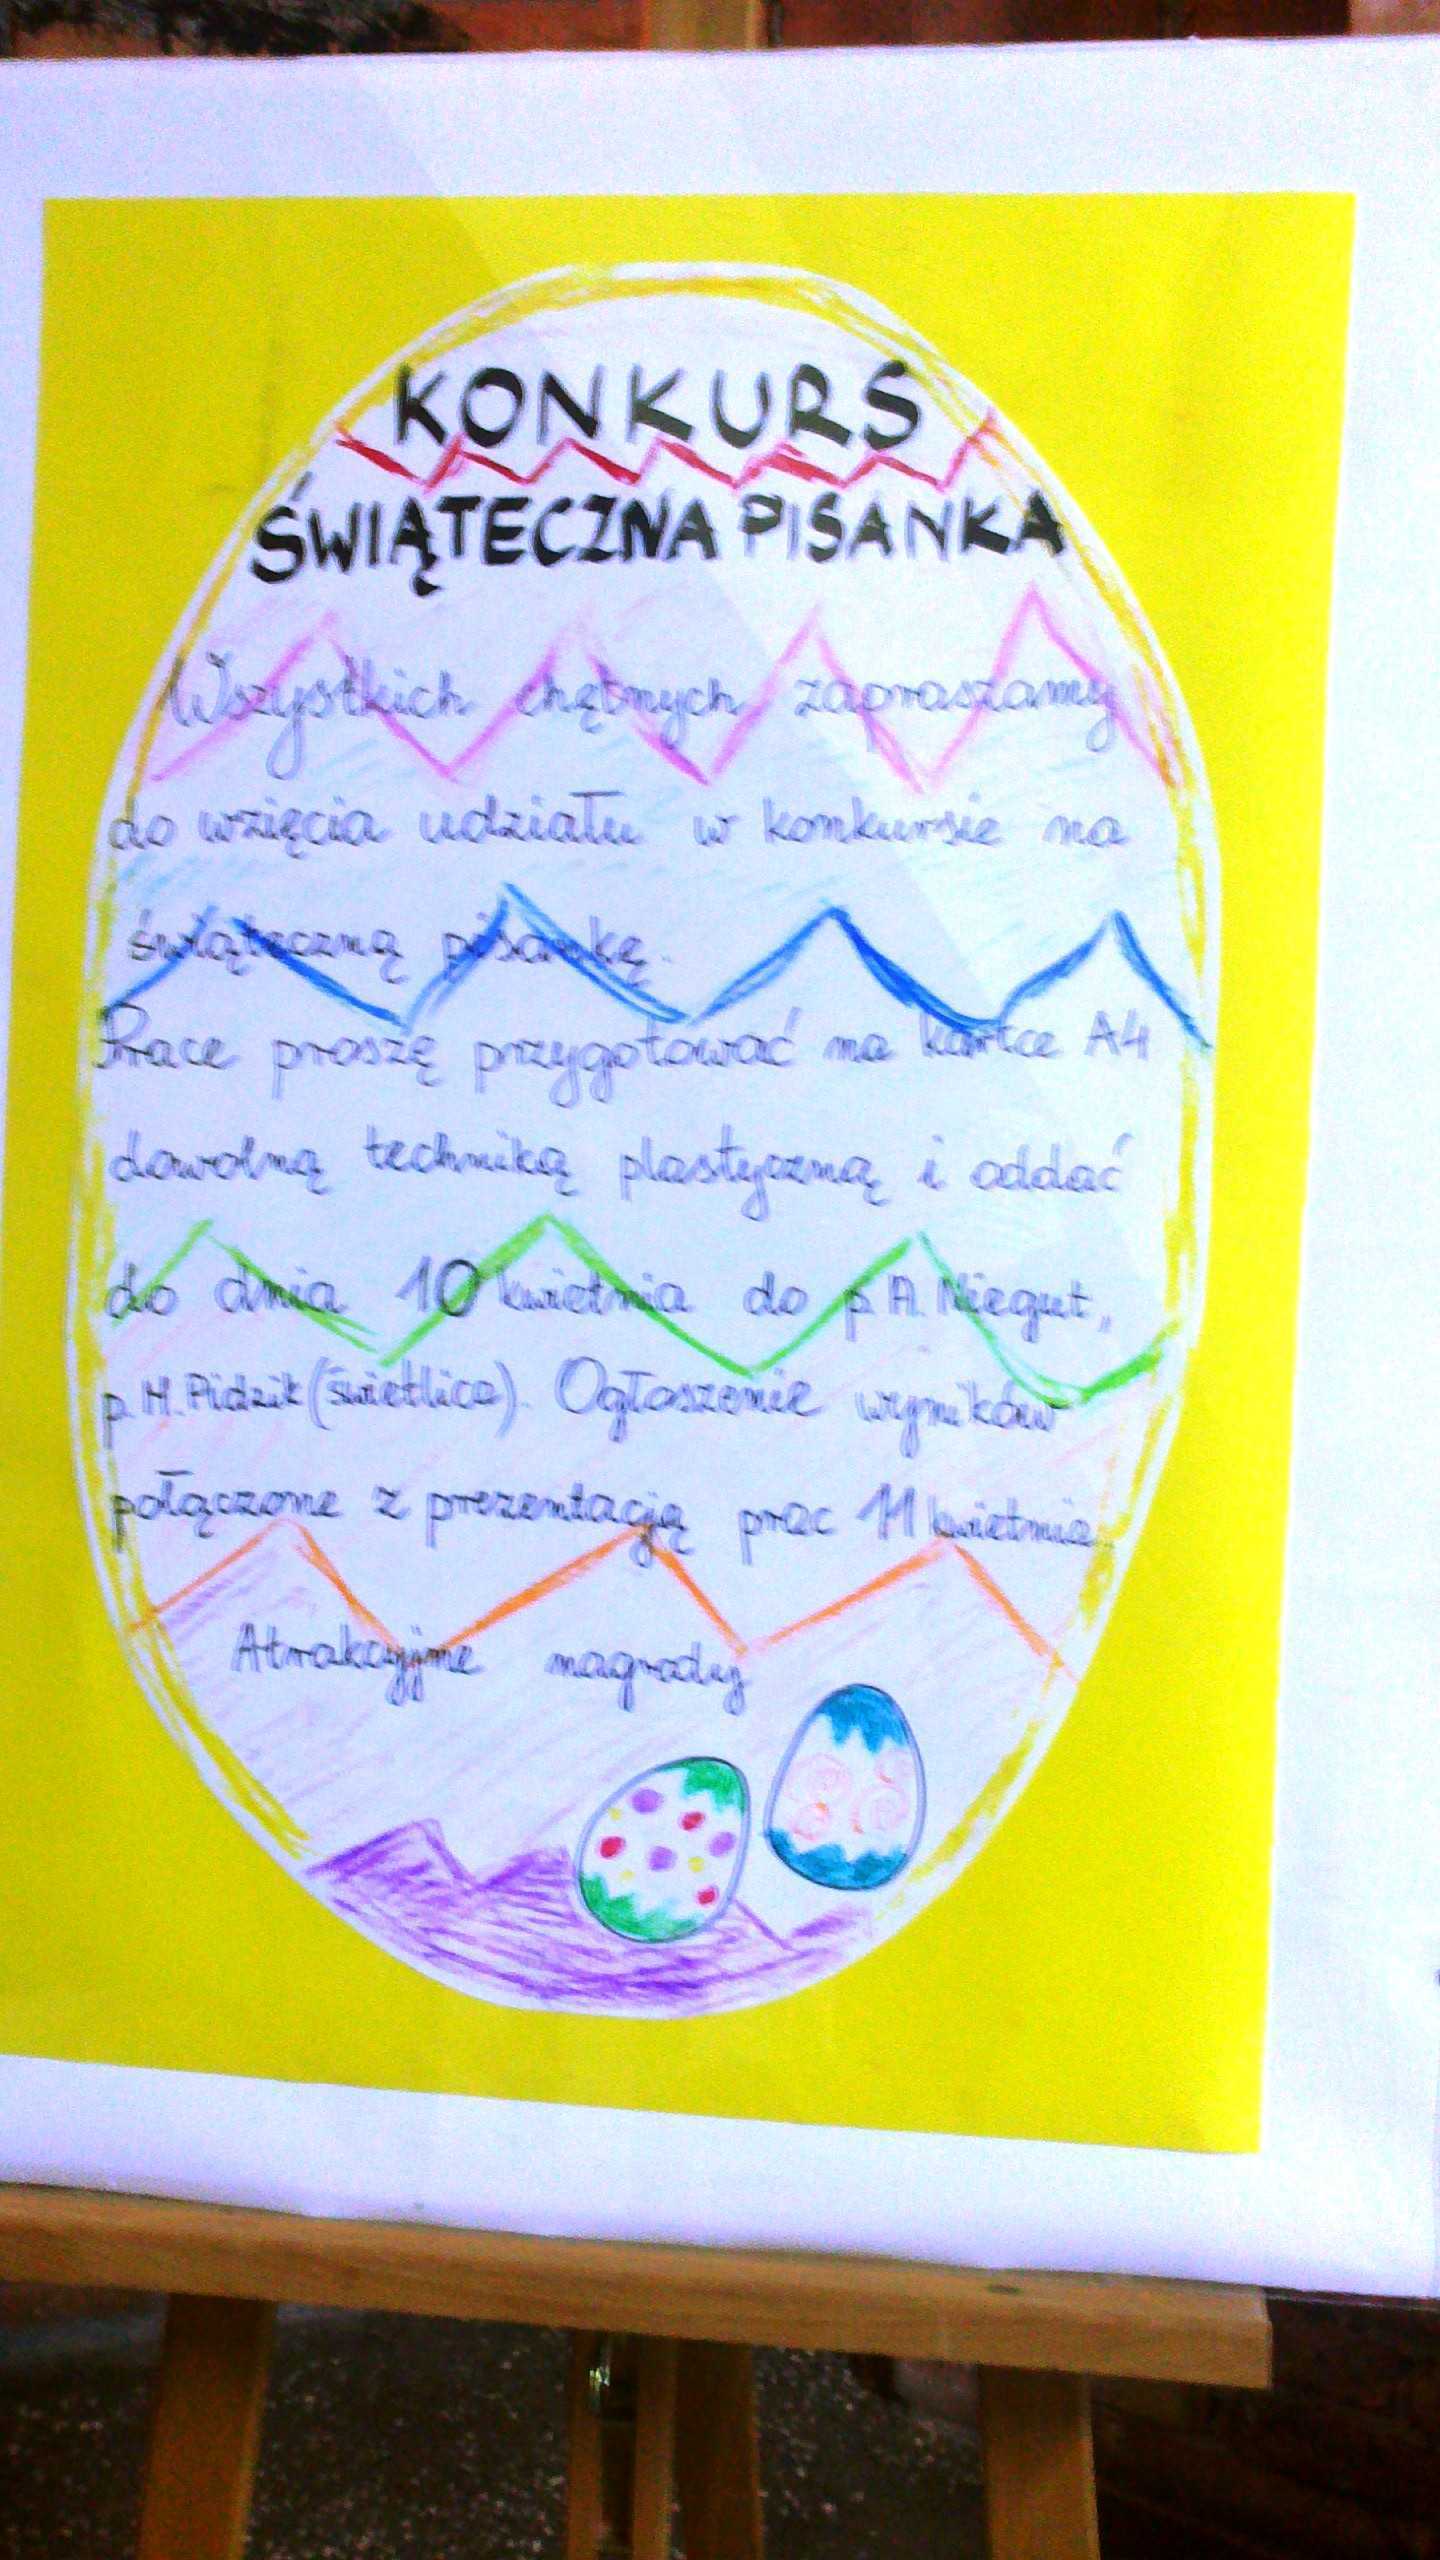 KONKURS
ŚWIĄTECZNA PISANKA
Wszystkich chętnych zapraszamy
do wzięcia udziału w konkursie na
świąteczną pisankę.
Prace proszę przygotować na kartce A4
dowolną techniką plastyczną i oddać
do dnia 10 kwietnia do p. A. Niegut,
p. M. Pidzik (świetlica). Ogłoszenie wyników
połączone z prezentacją prac 11 kwietnia.
Atrakcyjne nagrody